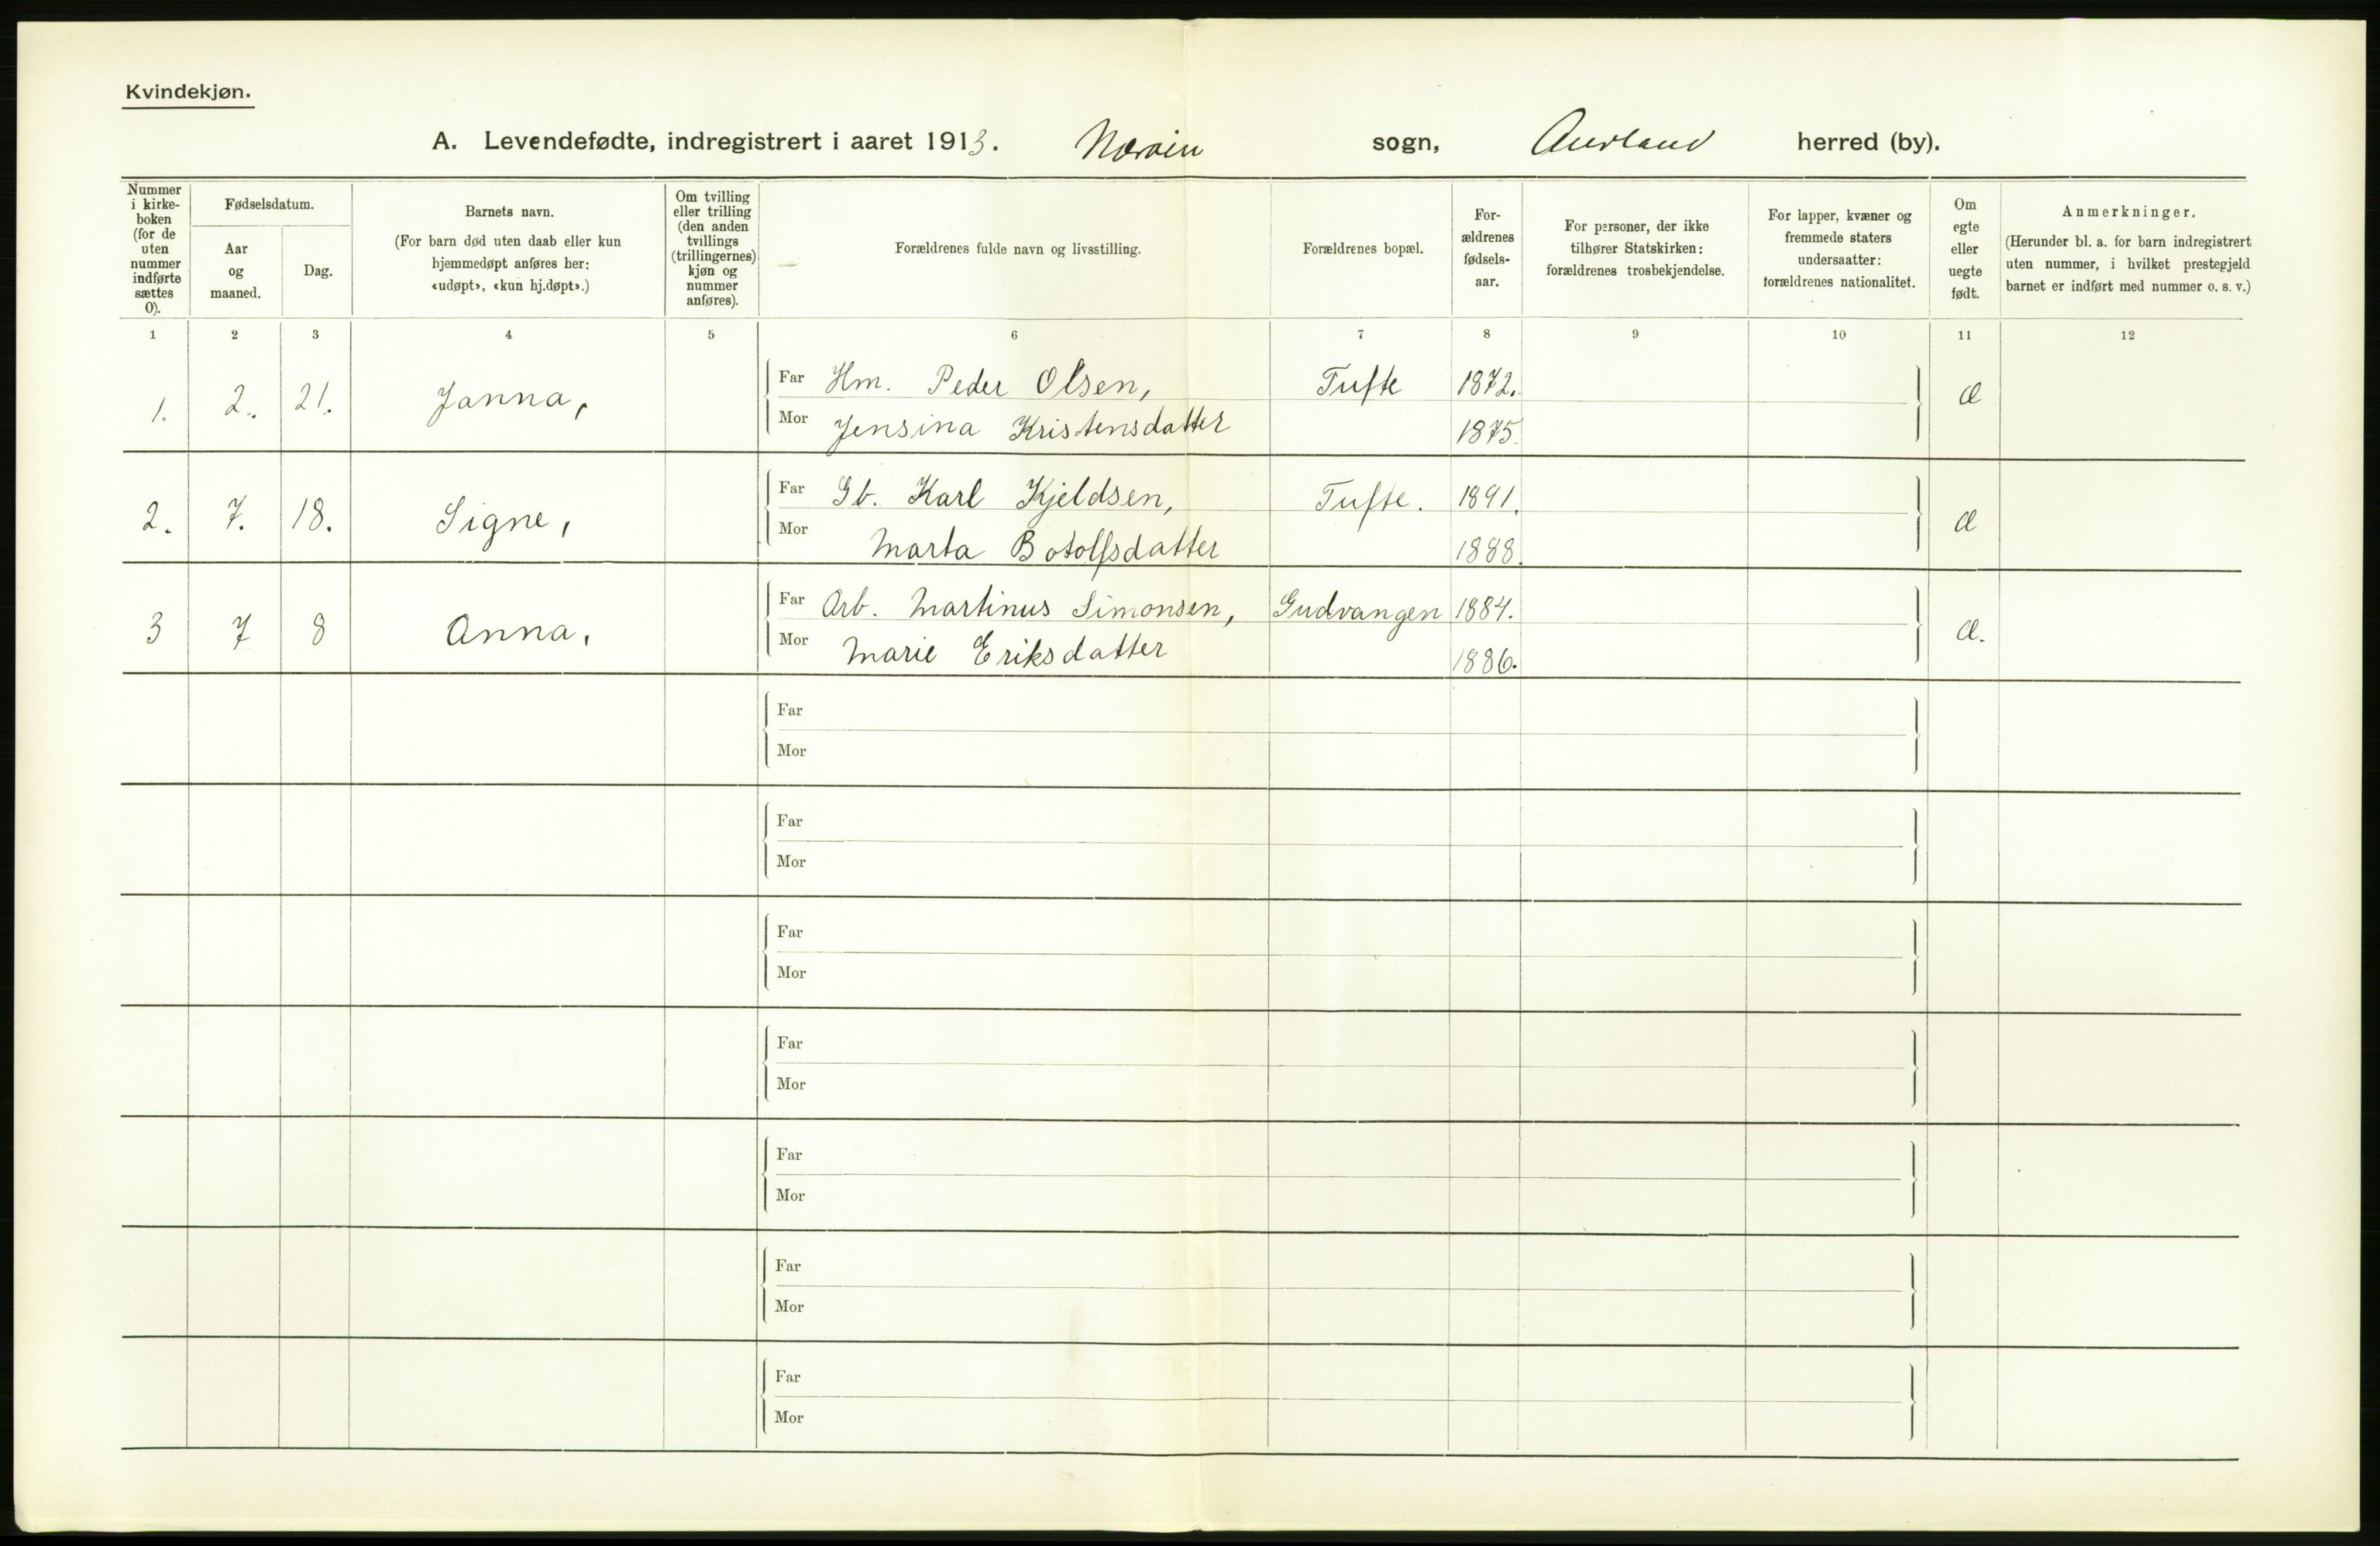 Kvindekjøn.
A. Levendefødte, indregistrert i aaret 1913. Nærøin sogn, Aurland herred (by).
Nummer i kirke-boken (for de uten nummer indførte sættes 0).
Fødselsdatum.
Aar og maaned.
Dag.
Barnets navn.
(For barn død uten daab eller kun hjemmedøpt anføres her: «udøpt», «kun hj.døpt».)
Om tvilling eller trilling (den anden tvillings (trillingernes) kjøn og nummer anføres).
Forældrenes fulde navn og livsstilling.
Forældrenes bopæl.
For-ældrenes fødsels-aar.
For personer, der ikke tilhører Statskirken: forældrenes trosbekjendelse.
For lapper, kvæner og fremmede staters undersaatter: forældrenes nationalitet.
Om egte eller uegte født.
Anmerkninger.
(Herunder bl. a. for barn indregistrert uten nummer, i hvilket prestegjeld barnet er indført med nummer o. s. v.)
1 2 3 4 5 6 7 8 9 10 11 12
1. 2. 21. Janna, Far Hm. Peder Olsen, Tufte 1872. Æ
Mor Jensina Kristensdatter 1875.
2. 7. 18. Signe, Far Gb. Karl Kjeldsen, Tufte. 1891. Æ
Mor Marta Botolfsdatter 1888.
3 7 8 Anna, Far Arb. Martinus Simonsen, Gudvangen 1884. Æ.
Mor Marie Eriksdatter 1886.
Far
Mor
Far
Mor
Far
Mor
Far
Mor
Far
Mor
Far
Mor
Far
Mor